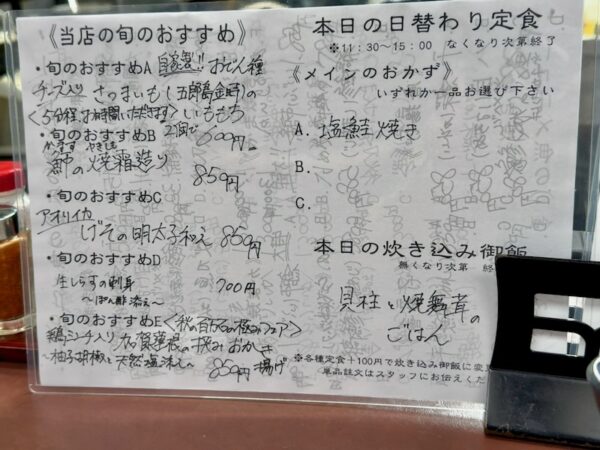 《当店の旬のおすすめ》
・旬のおすすめA 自家製!! おでん種
チーズ入り さつまいも(五郎島金時)の
<5分程、お時間いただきます> いももち
・旬のおすすめB 2個で 600円。
かます やきしも
魳の焼霜造り
850円
・旬のおすすめC
アオリイカ
げその明太子和え 850円
・旬のおすすめD
生しらすの刺身
〜ぽん酢添え〜 700円
・旬のおすすめE <秋の百万石の極みフェア>
鶏ミンチ入り 加賀蓮根の挟みおかき
〜柚子胡椒と天然塩添え〜 850円 揚げ
本日の日替わり定食
※11:30〜15:00 なくなり次第終了
《メインのおかず》
いずれか一品お選び下さい
A. 塩鮭焼き
B.
C.
本日の炊き込み御飯
無くなり次第 終
貝柱と焼舞茸の
ごはん
※各種定食+100円で炊き込み御飯に変更
単品注文はスタッフにお伝えくだ